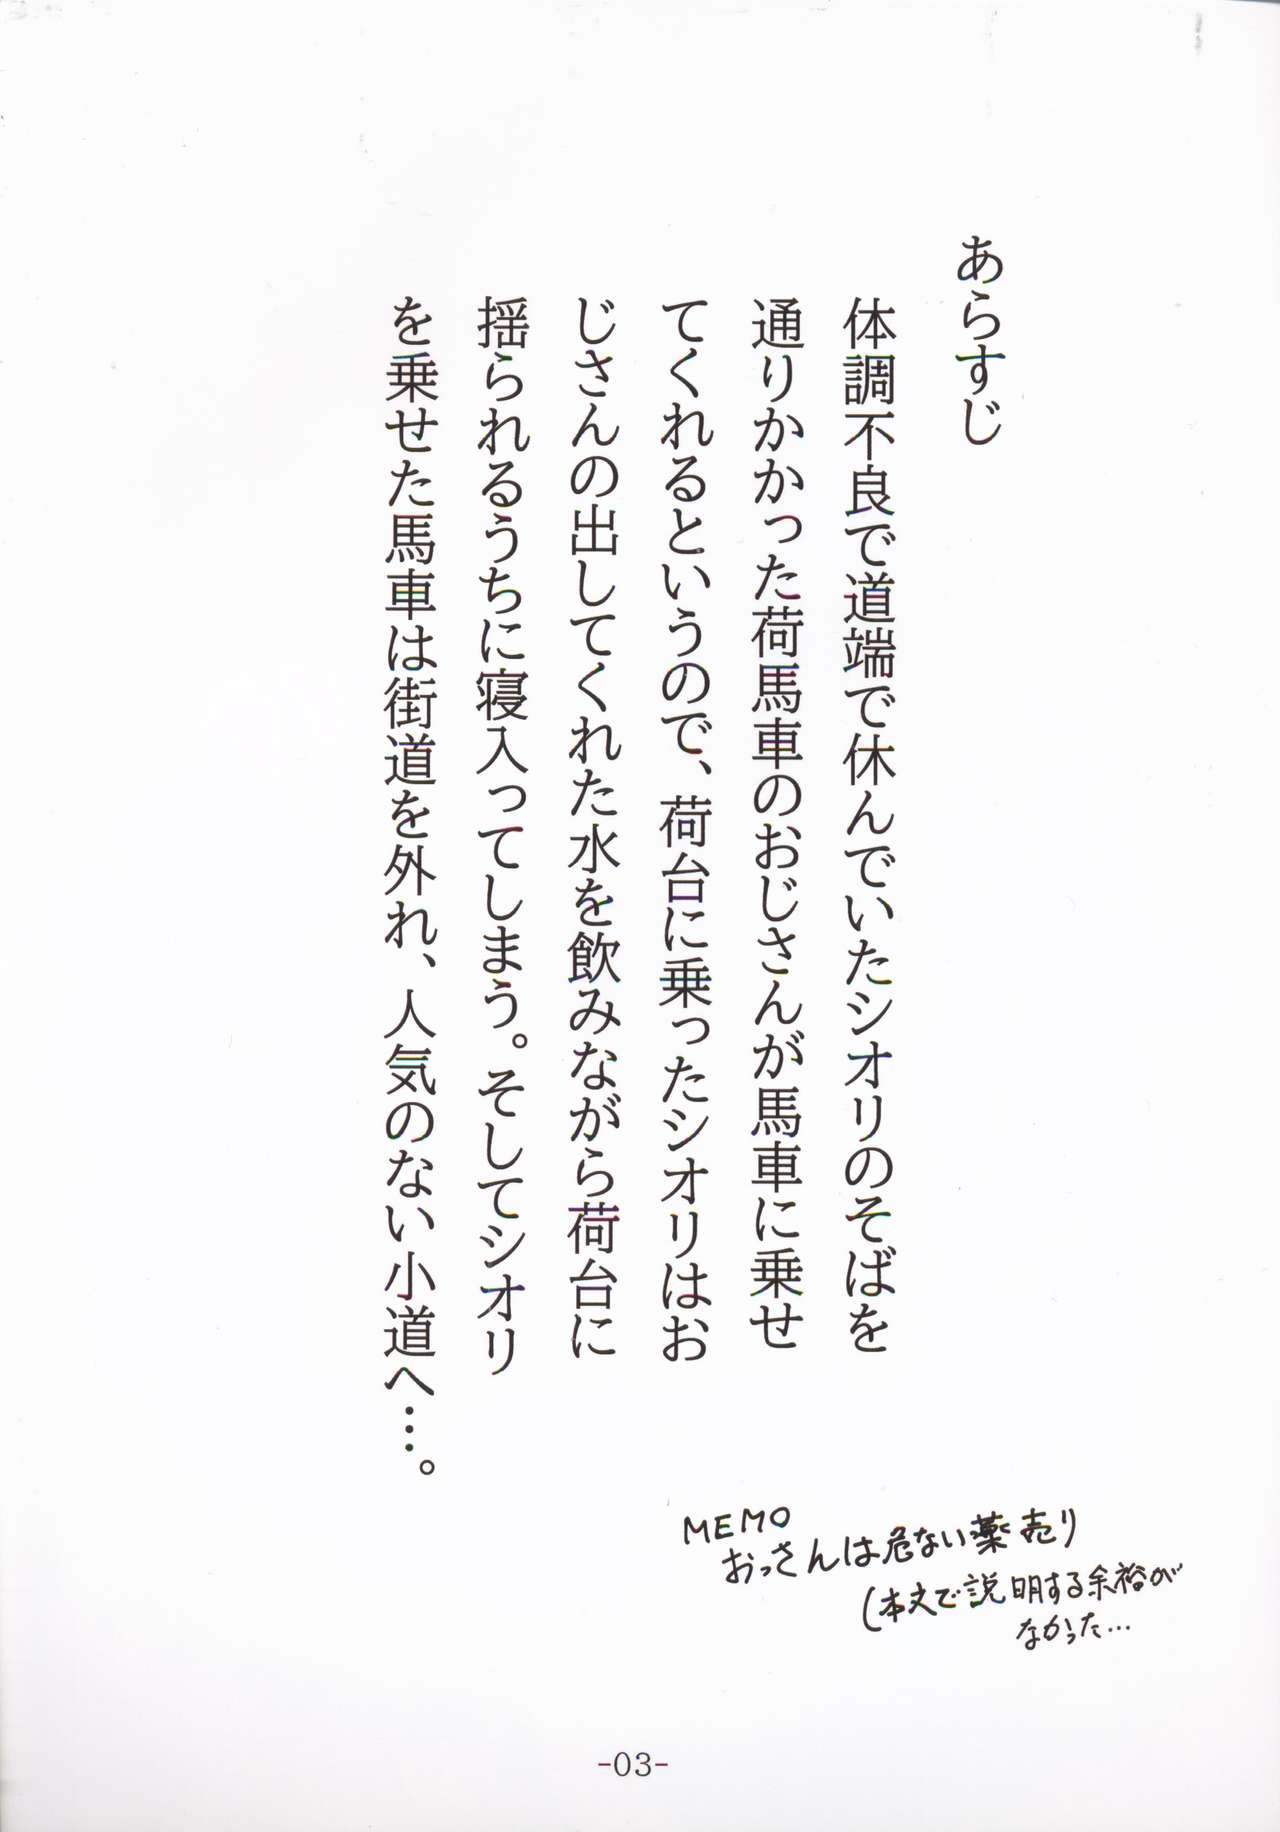 あらすじ
体調不良で道端で休んでいたシオリのそばを
通りかかった荷馬車のおじさんが馬車に乗せ
てくれるというので、荷台に乗ったシオリはお
じさんの出してくれた水を飲みながら荷台に
揺られるうちに寝入ってしまう。そしてシオリ
を乗せた馬車は街道を外れ、人気のない小道へ…。
MEMO
おっさんは危ない薬売り
(本文で説明する余裕が
なかった…
-03-